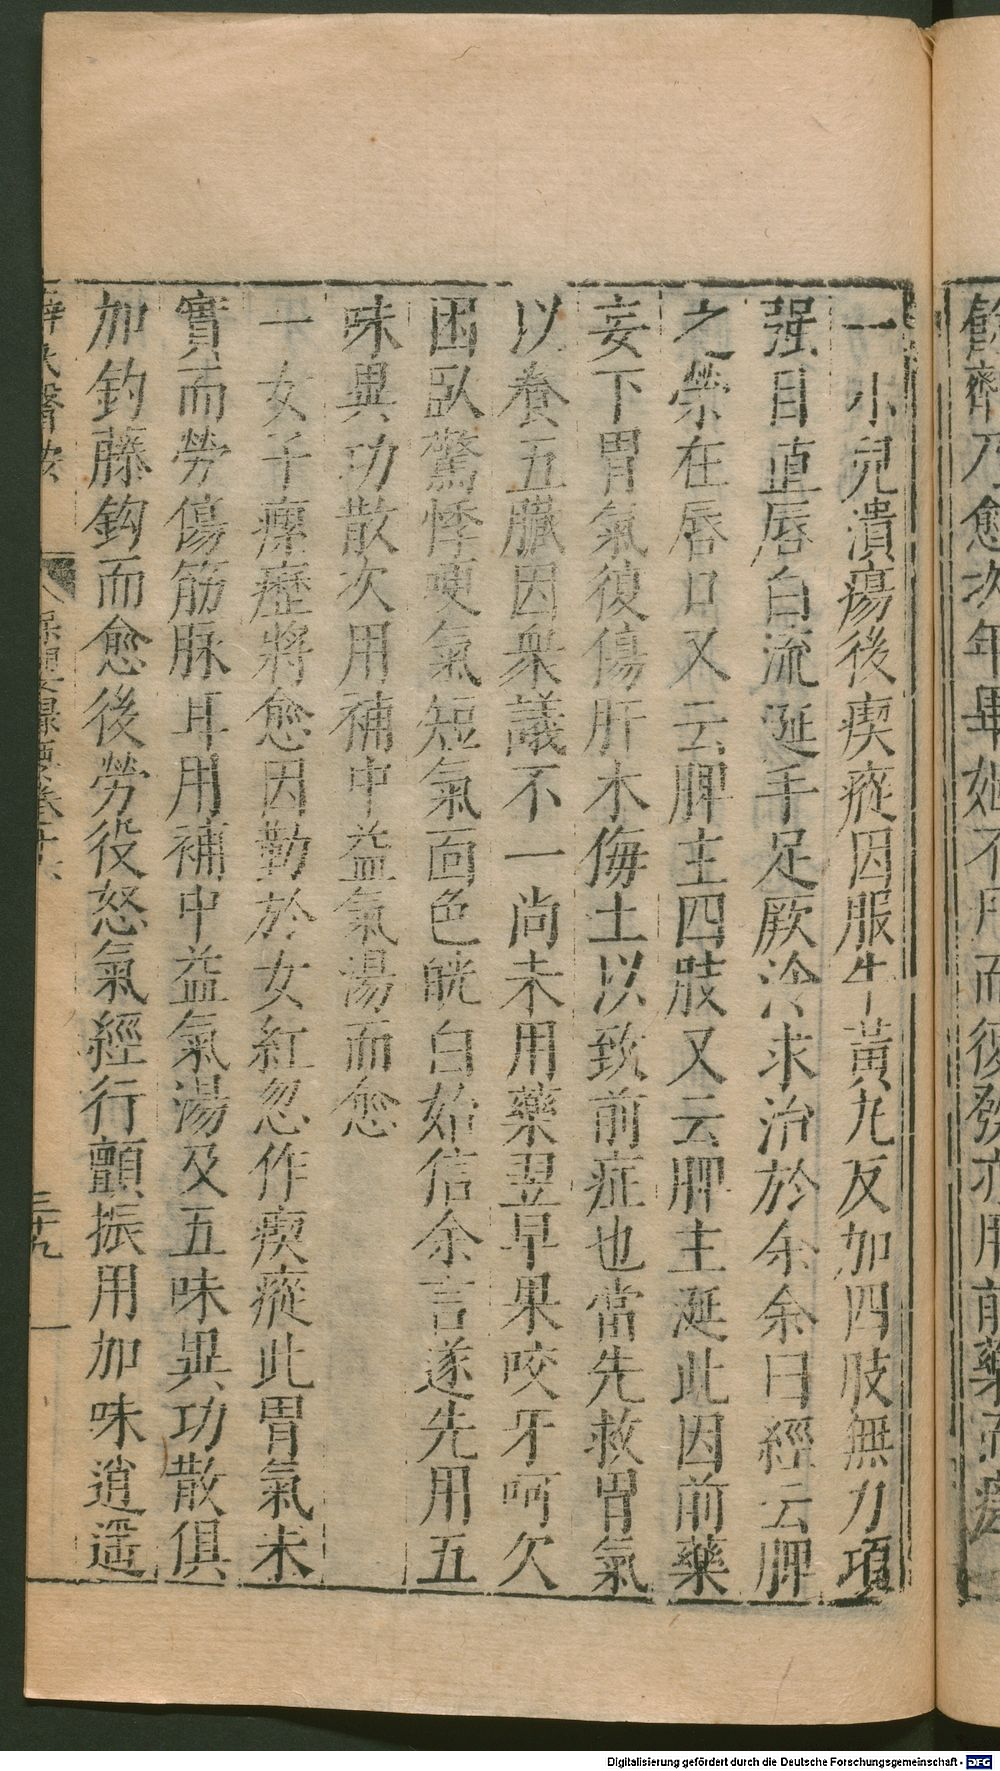 一小兒潰瘍後瘈瘲因服牛黃丸反加四肢無力項
强目直唇白流涎手足厥冷求治於余余曰經云脾
之榮在唇口又云脾主四肢又云脾主涎此因前藥
妄下胃氣復傷肝木侮土以致前症也當先救胃氣
以養五臟因衆議不一尚未用藥翌早果咬牙呵欠
困臥驚悸哽氣短氣面色㿠白始信余言遂先用五
味異功散次用補中益氣湯而愈
一女子瘰癧將愈因勤於女紅忽作瘈瘲此胃氣未
實而勞傷筋脉耳用補中益氣湯及五味異功散俱
加鈎藤鈎而愈後勞役怒氣經行顫振用加味逍遥
薛氏醫按
保嬰撮要卷十六
三十九
Digitalisierung gefördert durch die Deutsche Forschungsgemeinschaft - DFG